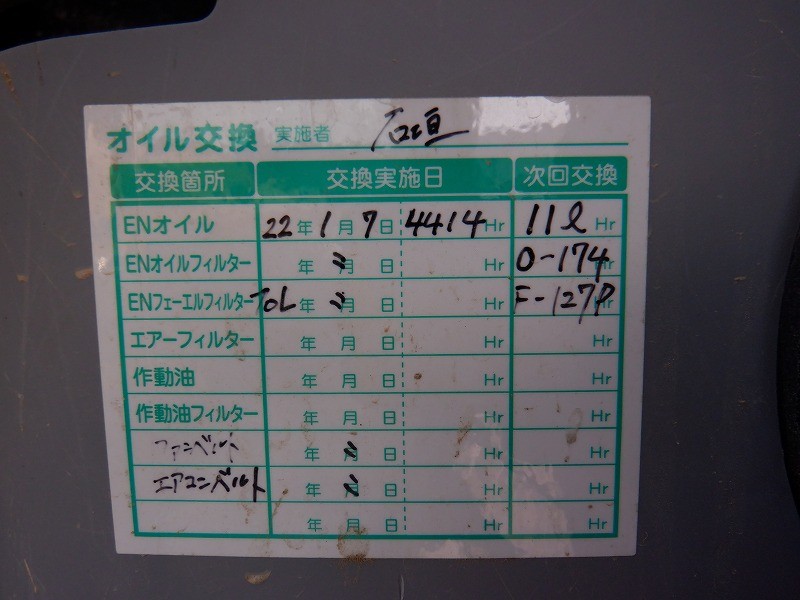 オイル交換 実施者 石垣
交換箇所 交換実施日 次回交換
ENオイル 22年1月7日 4414Hr 11ℓ Hr
ENオイルフィルター 年 〃月 日 Hr O-174 Hr
ENフェーエルフィルター ToL 年 〃月 日 Hr F-127P Hr
エアーフィルター 年 月 日 Hr Hr
作動油 年 月 日 Hr Hr
作動油フィルター 年 月 日 Hr Hr
ファンベルト 年 〃月 日 Hr Hr
エアコンベルト 年 〃月 日 Hr Hr
年 月 日 Hr Hr